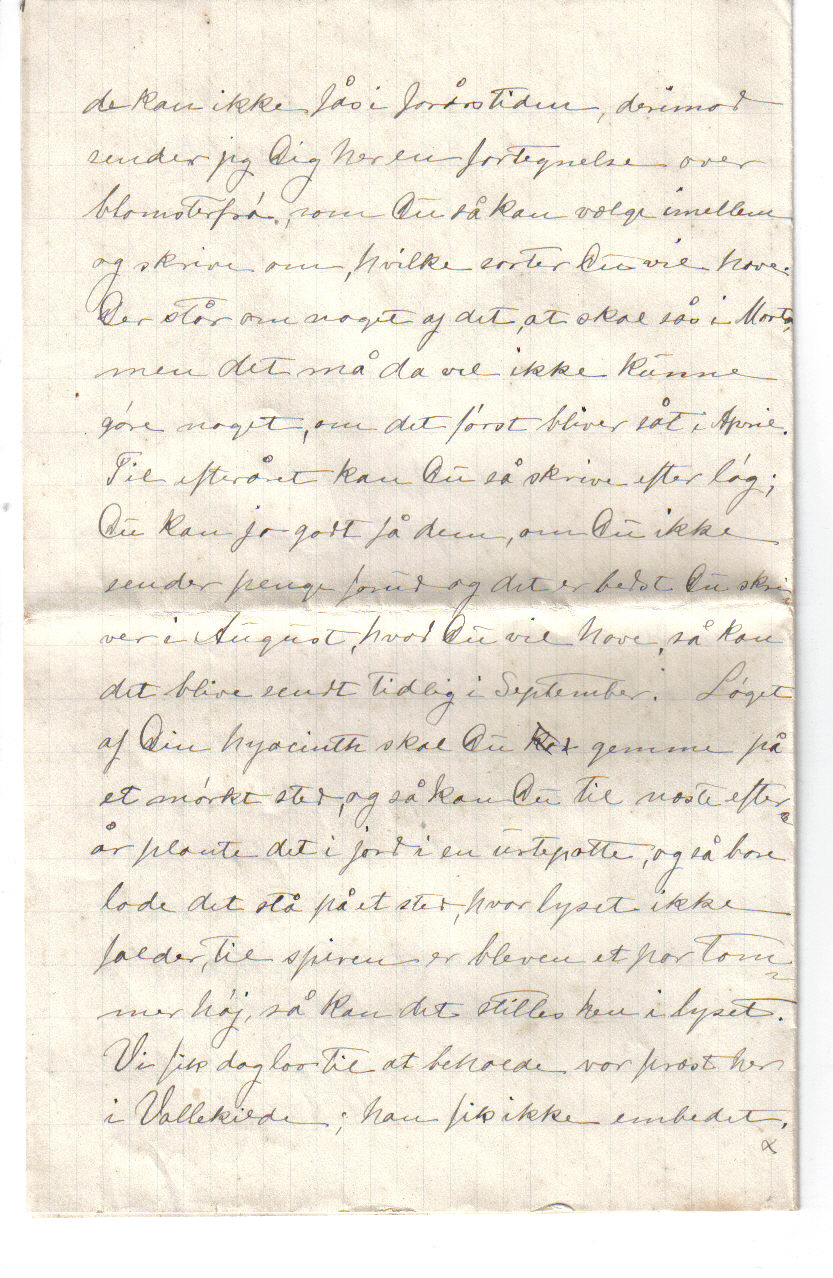 de kan ikke fås i forårstiden, derimod
sender jeg Dig her en fortegnelse over
blomsterfrø, som Du så kan vælge imellem
og skrive om, hvilke sorter Du vil have.
Der står om noget af det, at skal sås i Marts,
men det må da vel ikke kunne
gøre noget, om det først bliver sået i April.
Til efteråret kan Du så skrive efter løg;
Du kan jo godt få dem, om Du ikke
sender penge forud og det er bedst Du skri
ver i August, hvad Du vil have, så kan
det blive sendt tidlig i September. Løget
af Din hyacinth skal Du gemme på
et mørkt sted, og så kan Du til næste efter
år plante det i jord i en urtepotte, og så bare
lade det stå på et sted, hvor lyset ikke
falder, til spiren er bleven et par tom-
mer høj, så kan det stilles hen i lyset.
Vi fik dog lov til at beholde vor præst her
i Vallekilde; han fik ikke embedet.